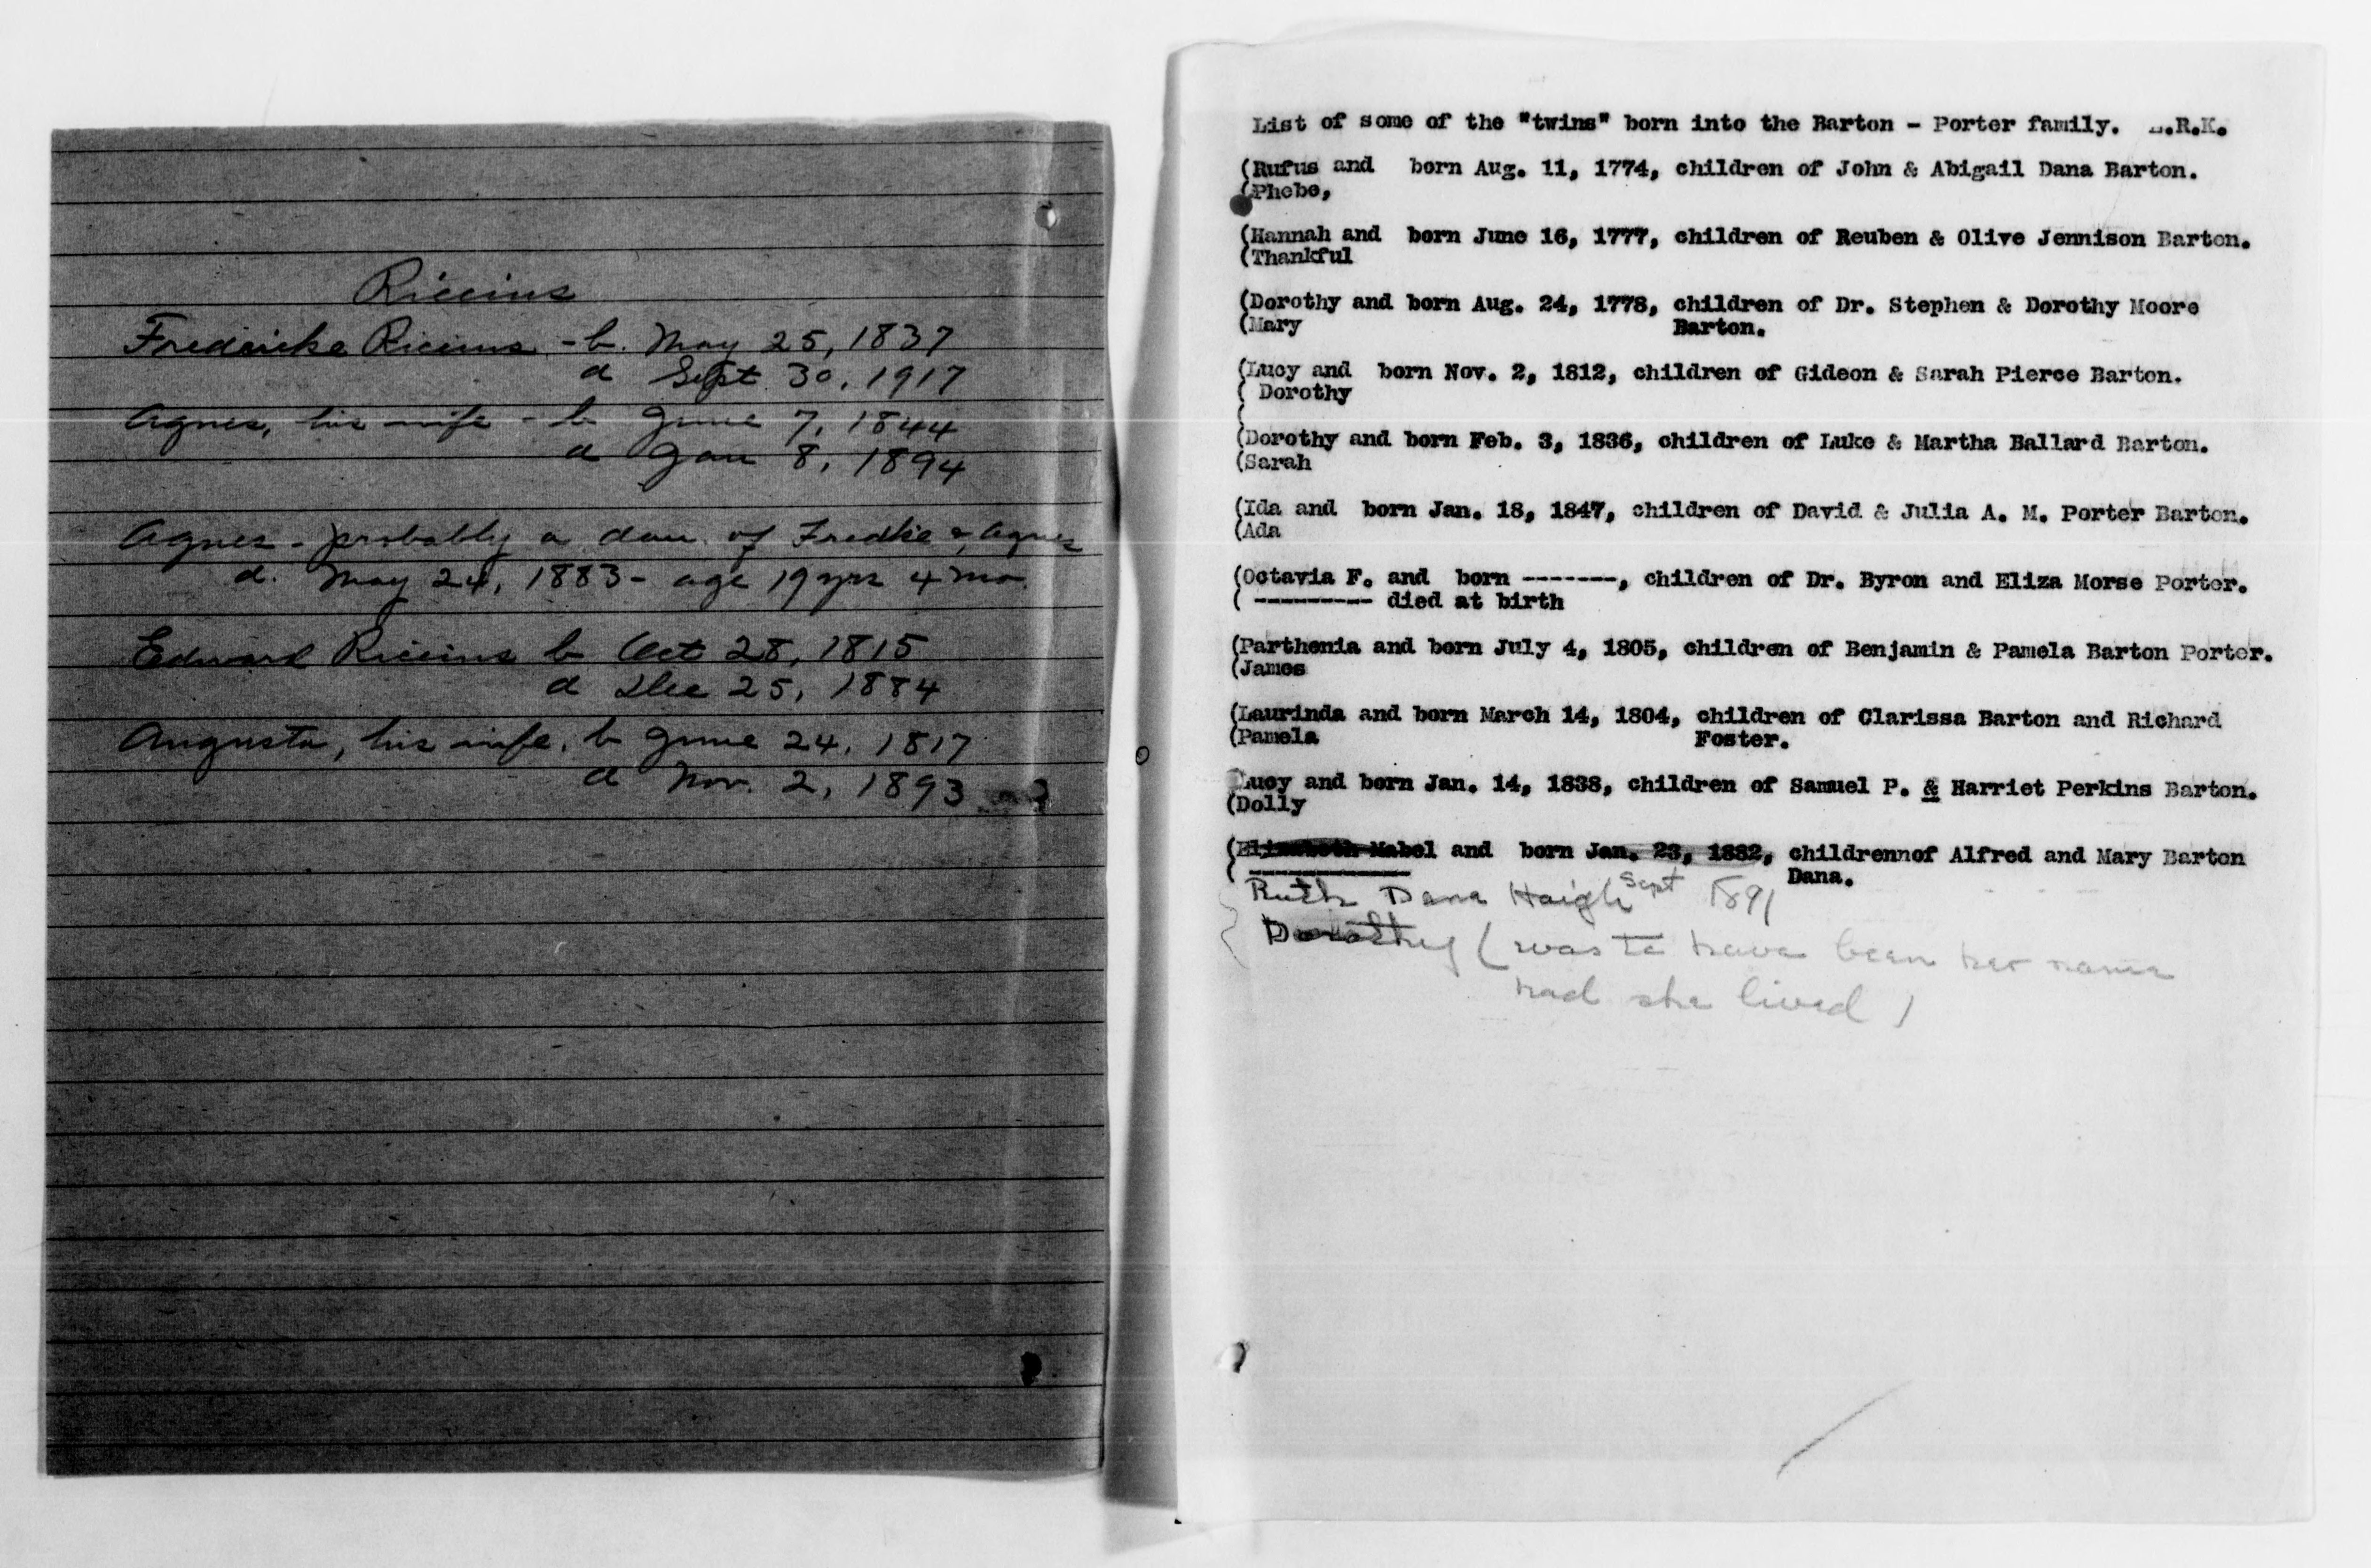 Riccius
Fredericke Riccius - b. May 25, 1837
d Sept. 30, 1917
Agnes, his wife - b June 7, 1844
d Jan 8, 1894
Agnes - probably a dau. of Fredke & Agnes
d. May 24, 1883 - age 19 yrs 4 mo.
Edward Riccius b Oct 28, 1815
d Dec 25, 1884
Augusta, his wife, b June 24, 1817
d Nov. 2, 1893
List of some of the "twins" born into the Barton - Porter family. .R.K.
(Rufus and born Aug. 11, 1774, children of John & Abigail Dana Barton.
(Phebe,
(Hannah and born June 16, 1777, children of Reuben & Olive Jennison Barton.
(Thankful
(Dorothy and born Aug. 24, 1778, children of Dr. Stephen & Dorothy Moore
(Mary Barton.
(Lucy and born Nov. 2, 1812, children of Gideon & Sarah Pierce Barton.
( Dorothy
(
(Dorothy and born Feb. 3, 1836, children of Luke & Martha Ballard Barton.
(Sarah
(Ida and born Jan. 18, 1847, children of David & Julia A. M. Porter Barton.
(Ada
(Octavia F. and born -------, children of Dr. Byron and Eliza Morse Porter.
( --------- died at birth
(Parthenia and born July 4, 1805, children of Benjamin & Pamela Barton Porter.
(James
(Laurinda and born March 14, 1804, children of Clarissa Barton and Richard
(Pamela Foster.
Lucy and born Jan. 14, 1838, children of Samuel P. & Harriet Perkins Barton.
(Dolly
(Elizabeth Mabel and born Jan. 23, 1882, childrennof Alfred and Mary Barton
( Dana.
Ruth Dana Haigh Sept 1891
Dorothy (was to have been her name
had she lived)